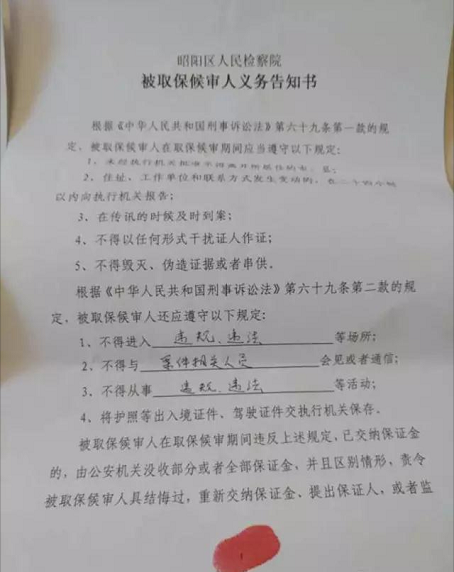 昭阳区人民检察院
被取保候审人义务告知书
根据《中华人民共和国刑事诉讼法》第六十九条第一款的规
定，被取保候审人在取保候审期间应当遵守以下规定：
1、未经执行机关批准不得离开所居住的市、县；
2、住址、工作单位和联系方式发生变动的，在二十四小时
以内向执行机关报告；
3、在传讯的时候及时到案；
4、不得以任何形式干扰证人作证；
5、不得毁灭、伪造证据或者串供。
根据《中华人民共和国刑事诉讼法》第六十九条第二款的规
定，被取保候审人还应遵守以下规定：
1、不得进入 违规、违法 等场所；
2、不得与 案件相关人员 会见或者通信；
3、不得从事 违规、违法 等活动；
4、将护照等出入境证件、驾驶证件交执行机关保存。
被取保候审人在取保候审期间违反上述规定，已交纳保证金
的，由公安机关没收部分或者全部保证金，并且区别情形，责令
被取保候审人具结悔过，重新交纳保证金、提出保证人，或者监